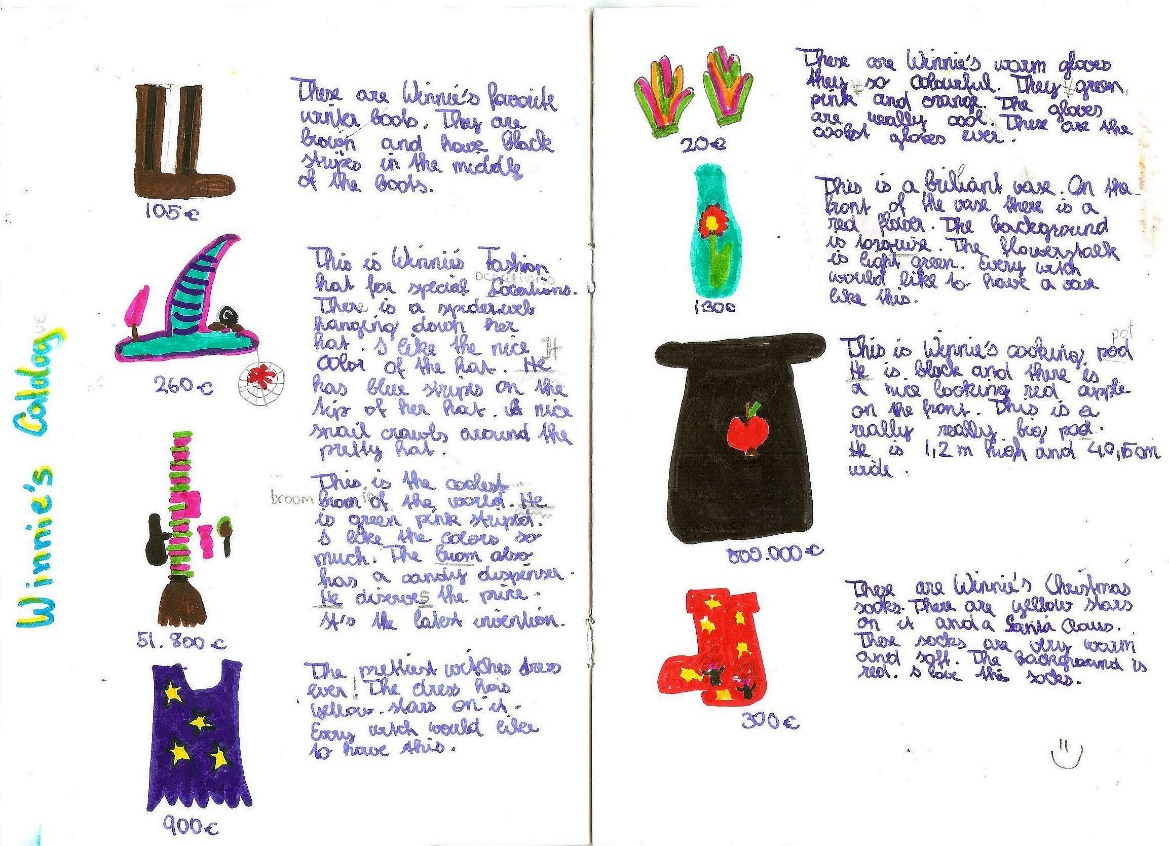 Winnie's Catalog
ve
These are Winnie's favorite
winter boots. They are
brown and have black
stripes in the middle
of the boots.
105 €
This is Winnie's Fashion
hat for special Locations.
occasions
There is a spiderweb
hanging down her
hat I like the nice
color of the hat. He
It
has blue stripes on the
tip of her hat. A nice
snail crawls around the
pretty hat.
260 €
This is the coolest
broom
broom of the world. He
is green pink striped.
I like the colors so
much. The broom also
has a candy dispenser.
He diserves the price.
It's the latest invention.
51.800 €
The prettiest witches dress
ever! The dress has
yellow stars on it.
Every witch would like
to have this.
900 €
These are Winnie's warm gloves
they so colourful. They green,
pink and orange. The gloves
are really cool. These are the
coolest gloves ever.
20 €
This is a briliant vase. On the
front of the vase there is a
red flower. The background
is torquise. The flowerstalk
is light green. Every witch
would like to have a vase
like this.
130 €
pot
This is Winnie's cooking pod
He is black and there is
a nice looking red apple
on the front. This is a
really really big pod.
He is 1,2 m high and 40,15 cm
wide.
800.000 €
These are Winnie's Christmas
socks. There are yellow stars
on it and a Santa Claus.
These socks are very warm
and soft. The background is
red. I love the socks.
300 €